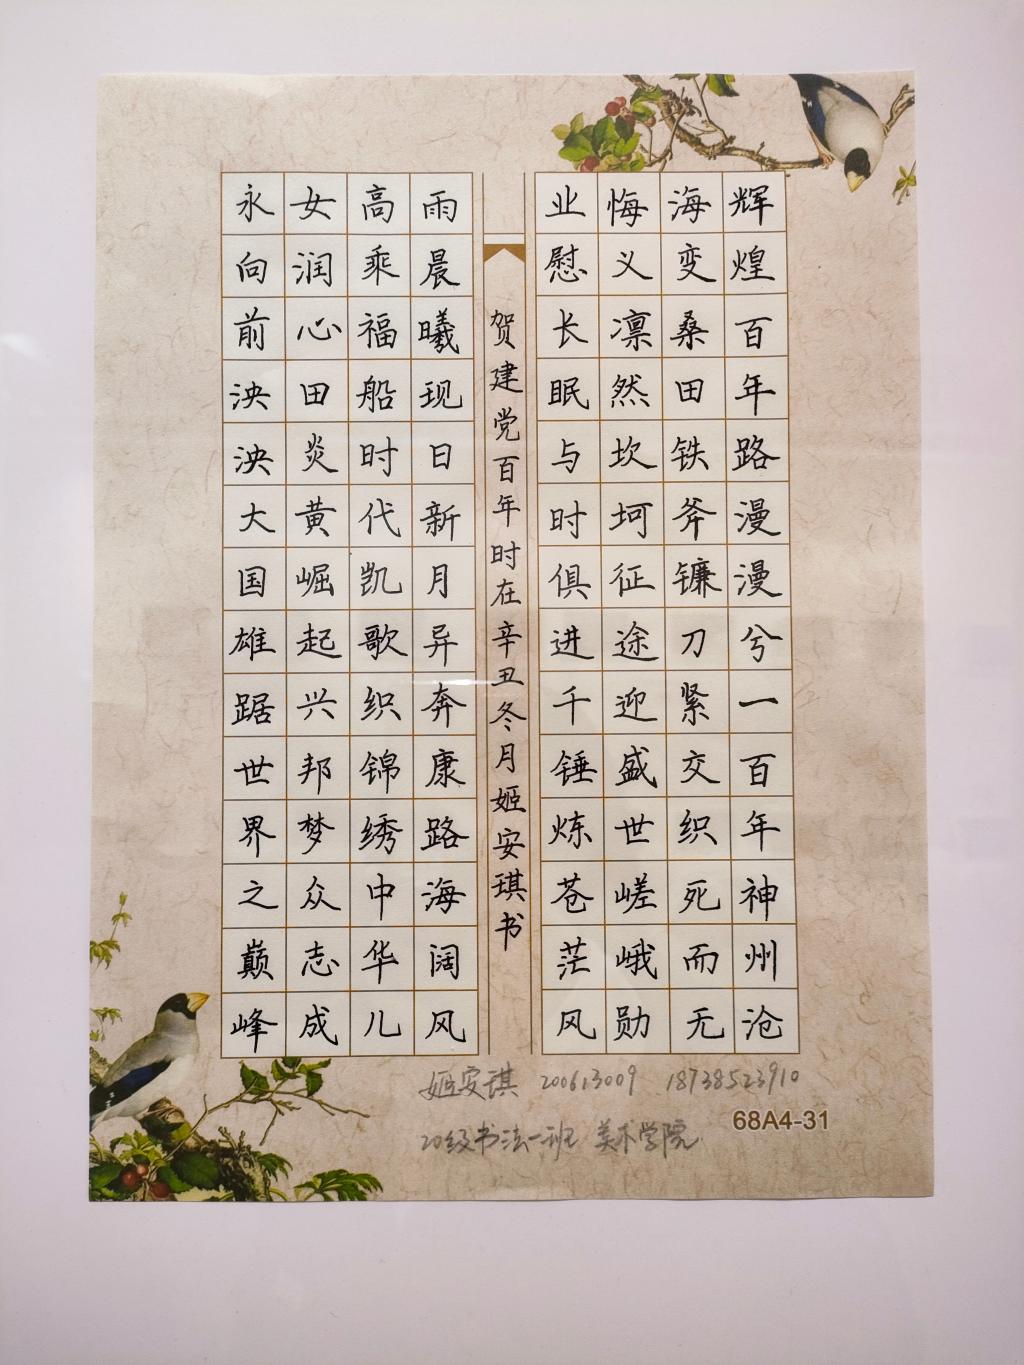 辉煌百年路漫漫兮一百年神州沧
海变桑田铁斧镰刀紧交织死而无
悔义凛然坎坷征途迎盛世嵯峨勋
业慰长眠与时俱进千锤炼苍茫风
雨晨曦现日新月异奔康路海阔风
高乘福船时代凯歌织锦绣中华儿
女润心田炎黄崛起兴邦梦众志成
永向前泱泱大国雄踞世界之巅峰
贺建党百年时在辛丑冬月姬安琪书
姬安琪 200613009 18738523910
20级书法一班 美术学院
68A4-31